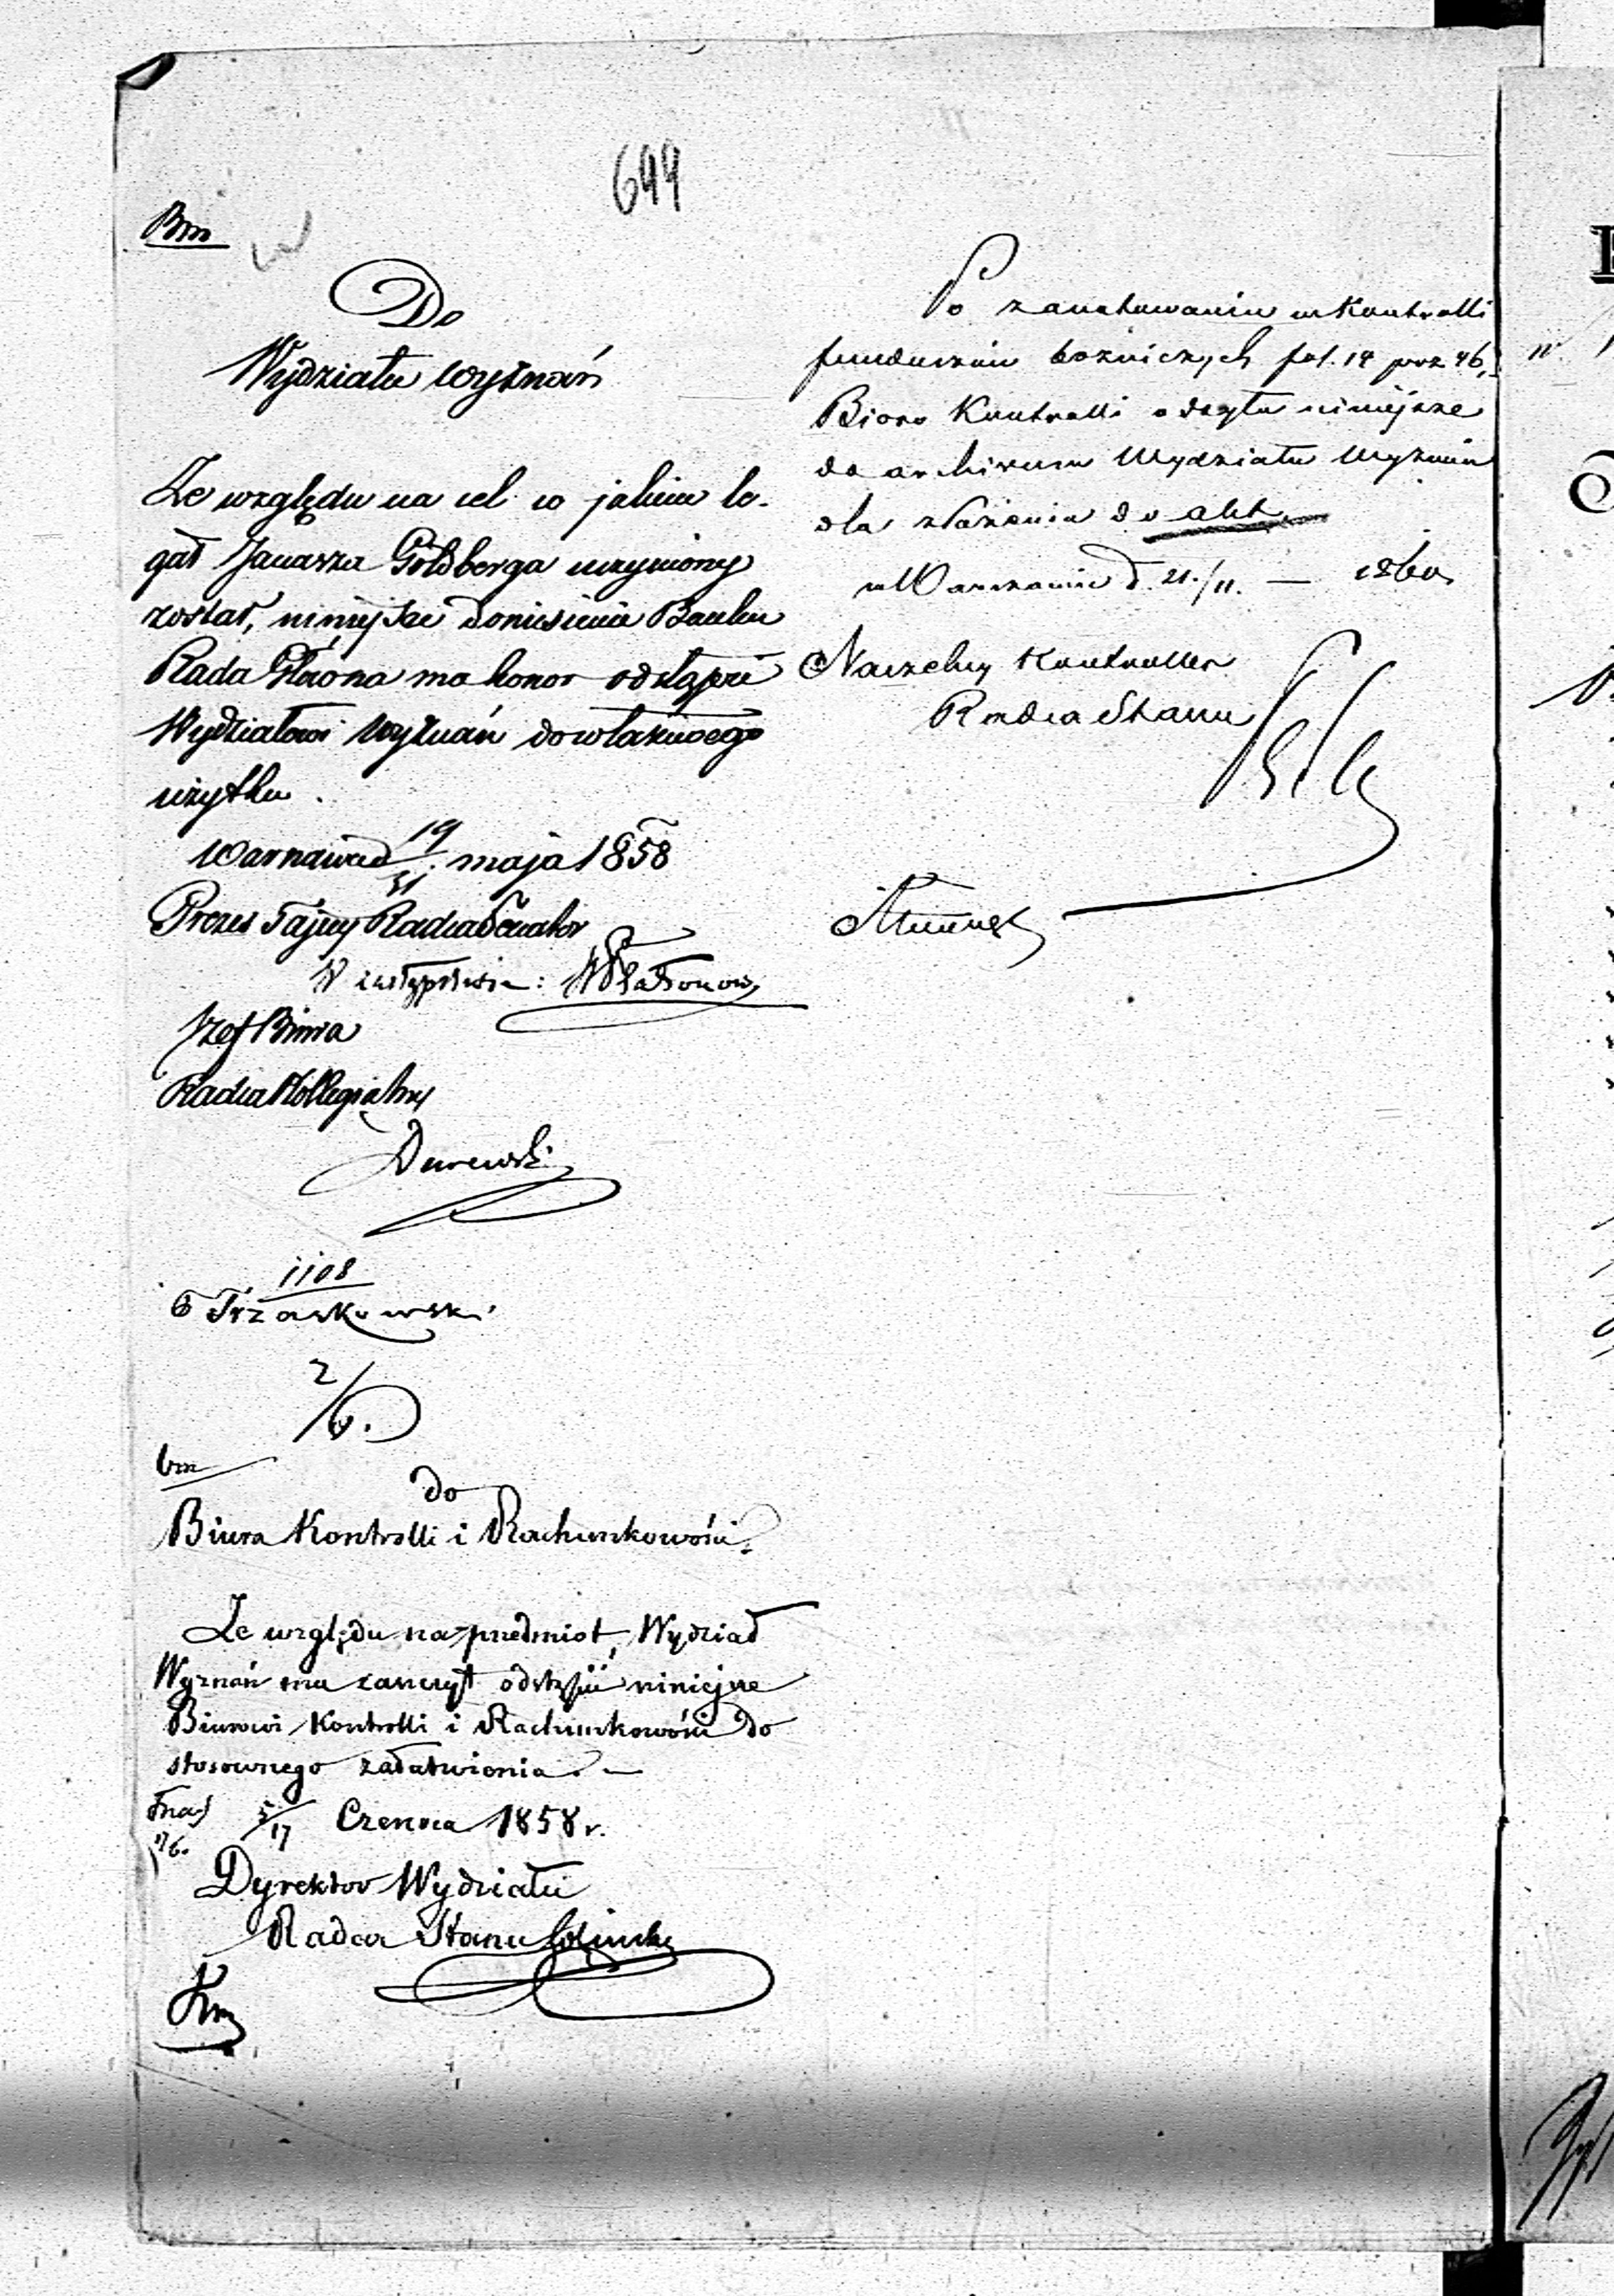 644
Bm
Do
Wydziału Wyznań
Ze względu na cel w jakim le-
gat Janasza Goldberga uczyniony
został, niniejsze doniesienie Banku
Rada Główna ma honor odstąpić
Wydziałowi Wyznań do właściwego
użytku.
Warszawa d 19/31 maja 1858
Prezes Tajny Radca Senator
W zastępstwie:
Szef Biura
Radca Kollegialny
1108
Trzaskowski
2/6.
bm
do
Biura Kontrolli i Rachunkowości.
Ze względu na przedmiot, Wydział
Wyznań ma zaszczyt odstąpić niniejsze
Biurowi Kontrolli i Rachunkowości do
stosownego załatwienia. —
5/17 Czerwca 1858 r.
Dyrektor Wydziału
Radca Stanu
Po zanotowaniu w Kontrolli
funduszów bożniczych fol. 14 poz 46,
Biuro Kontrolli odsyła niniejsze
do archiwum Wydziału Wyznań
dla złożenia do akt.
w Warszawie d. 21./11. — 1860.
Naczelny Kontroller
Radca Stanu